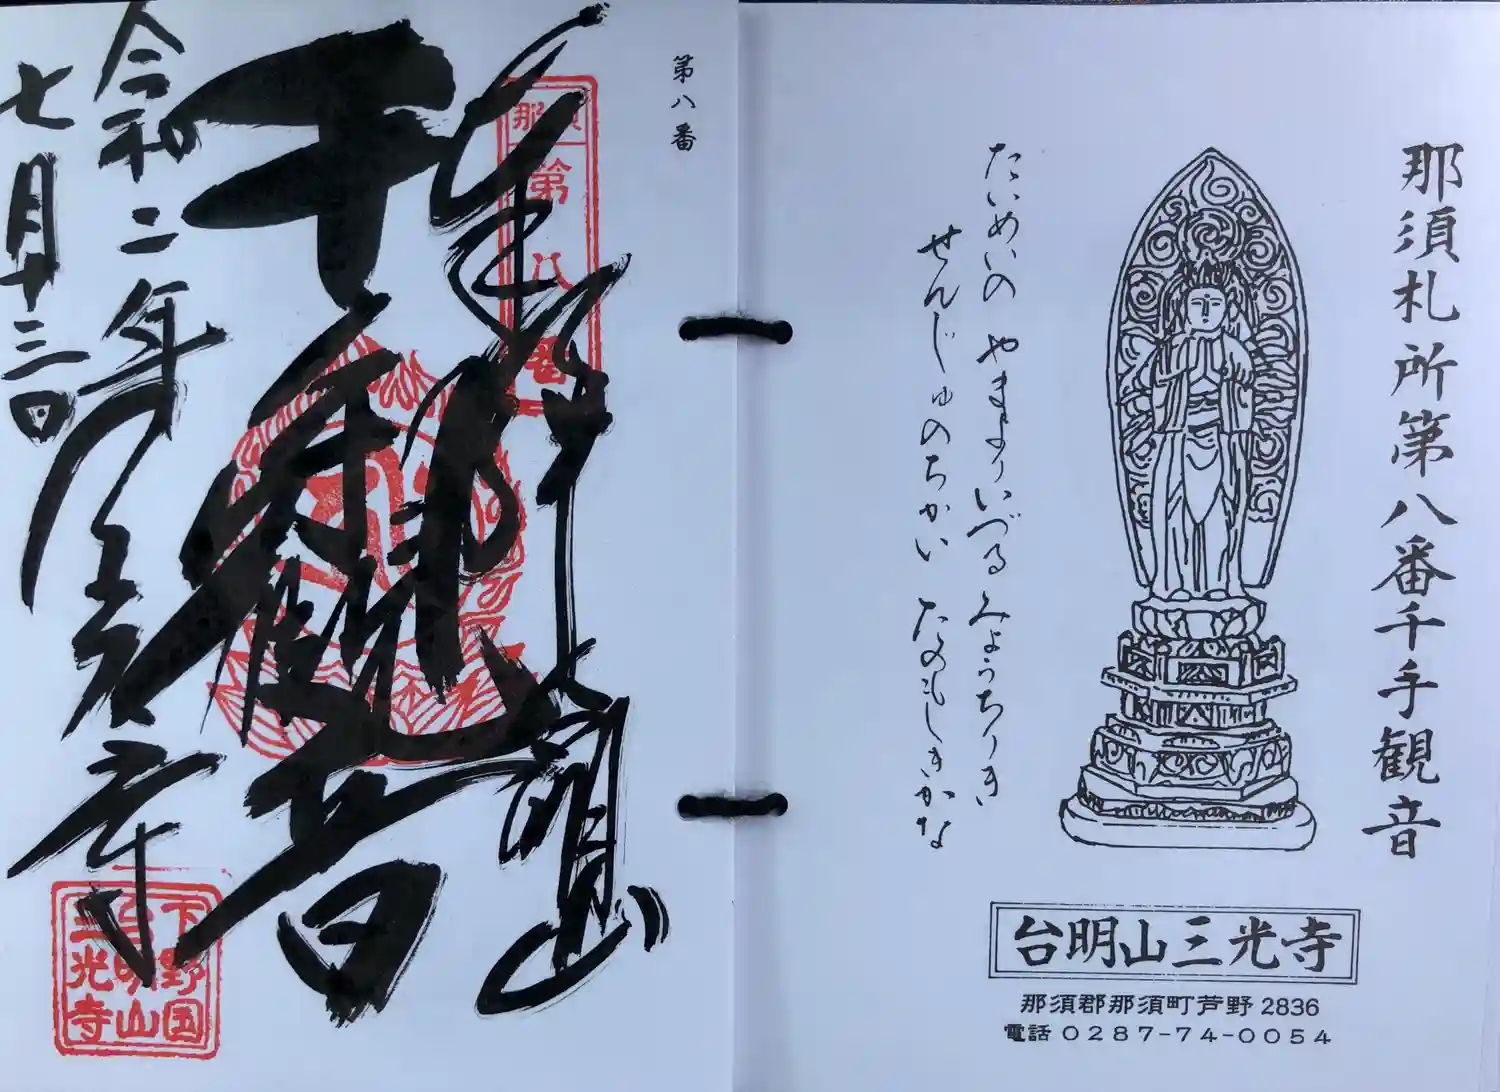 那須札所第八番千手観音
たいめいの やまよりいづる みょうちりき
せんじゅのちかい たのもしきかな
台明山三光寺
那須郡那須町芦野2836
電話 0287-74-0054
第八番
那須
第八番
奉拝
千手観音
令和二年
七月十三日
三光寺
下野国
台明山
三光寺